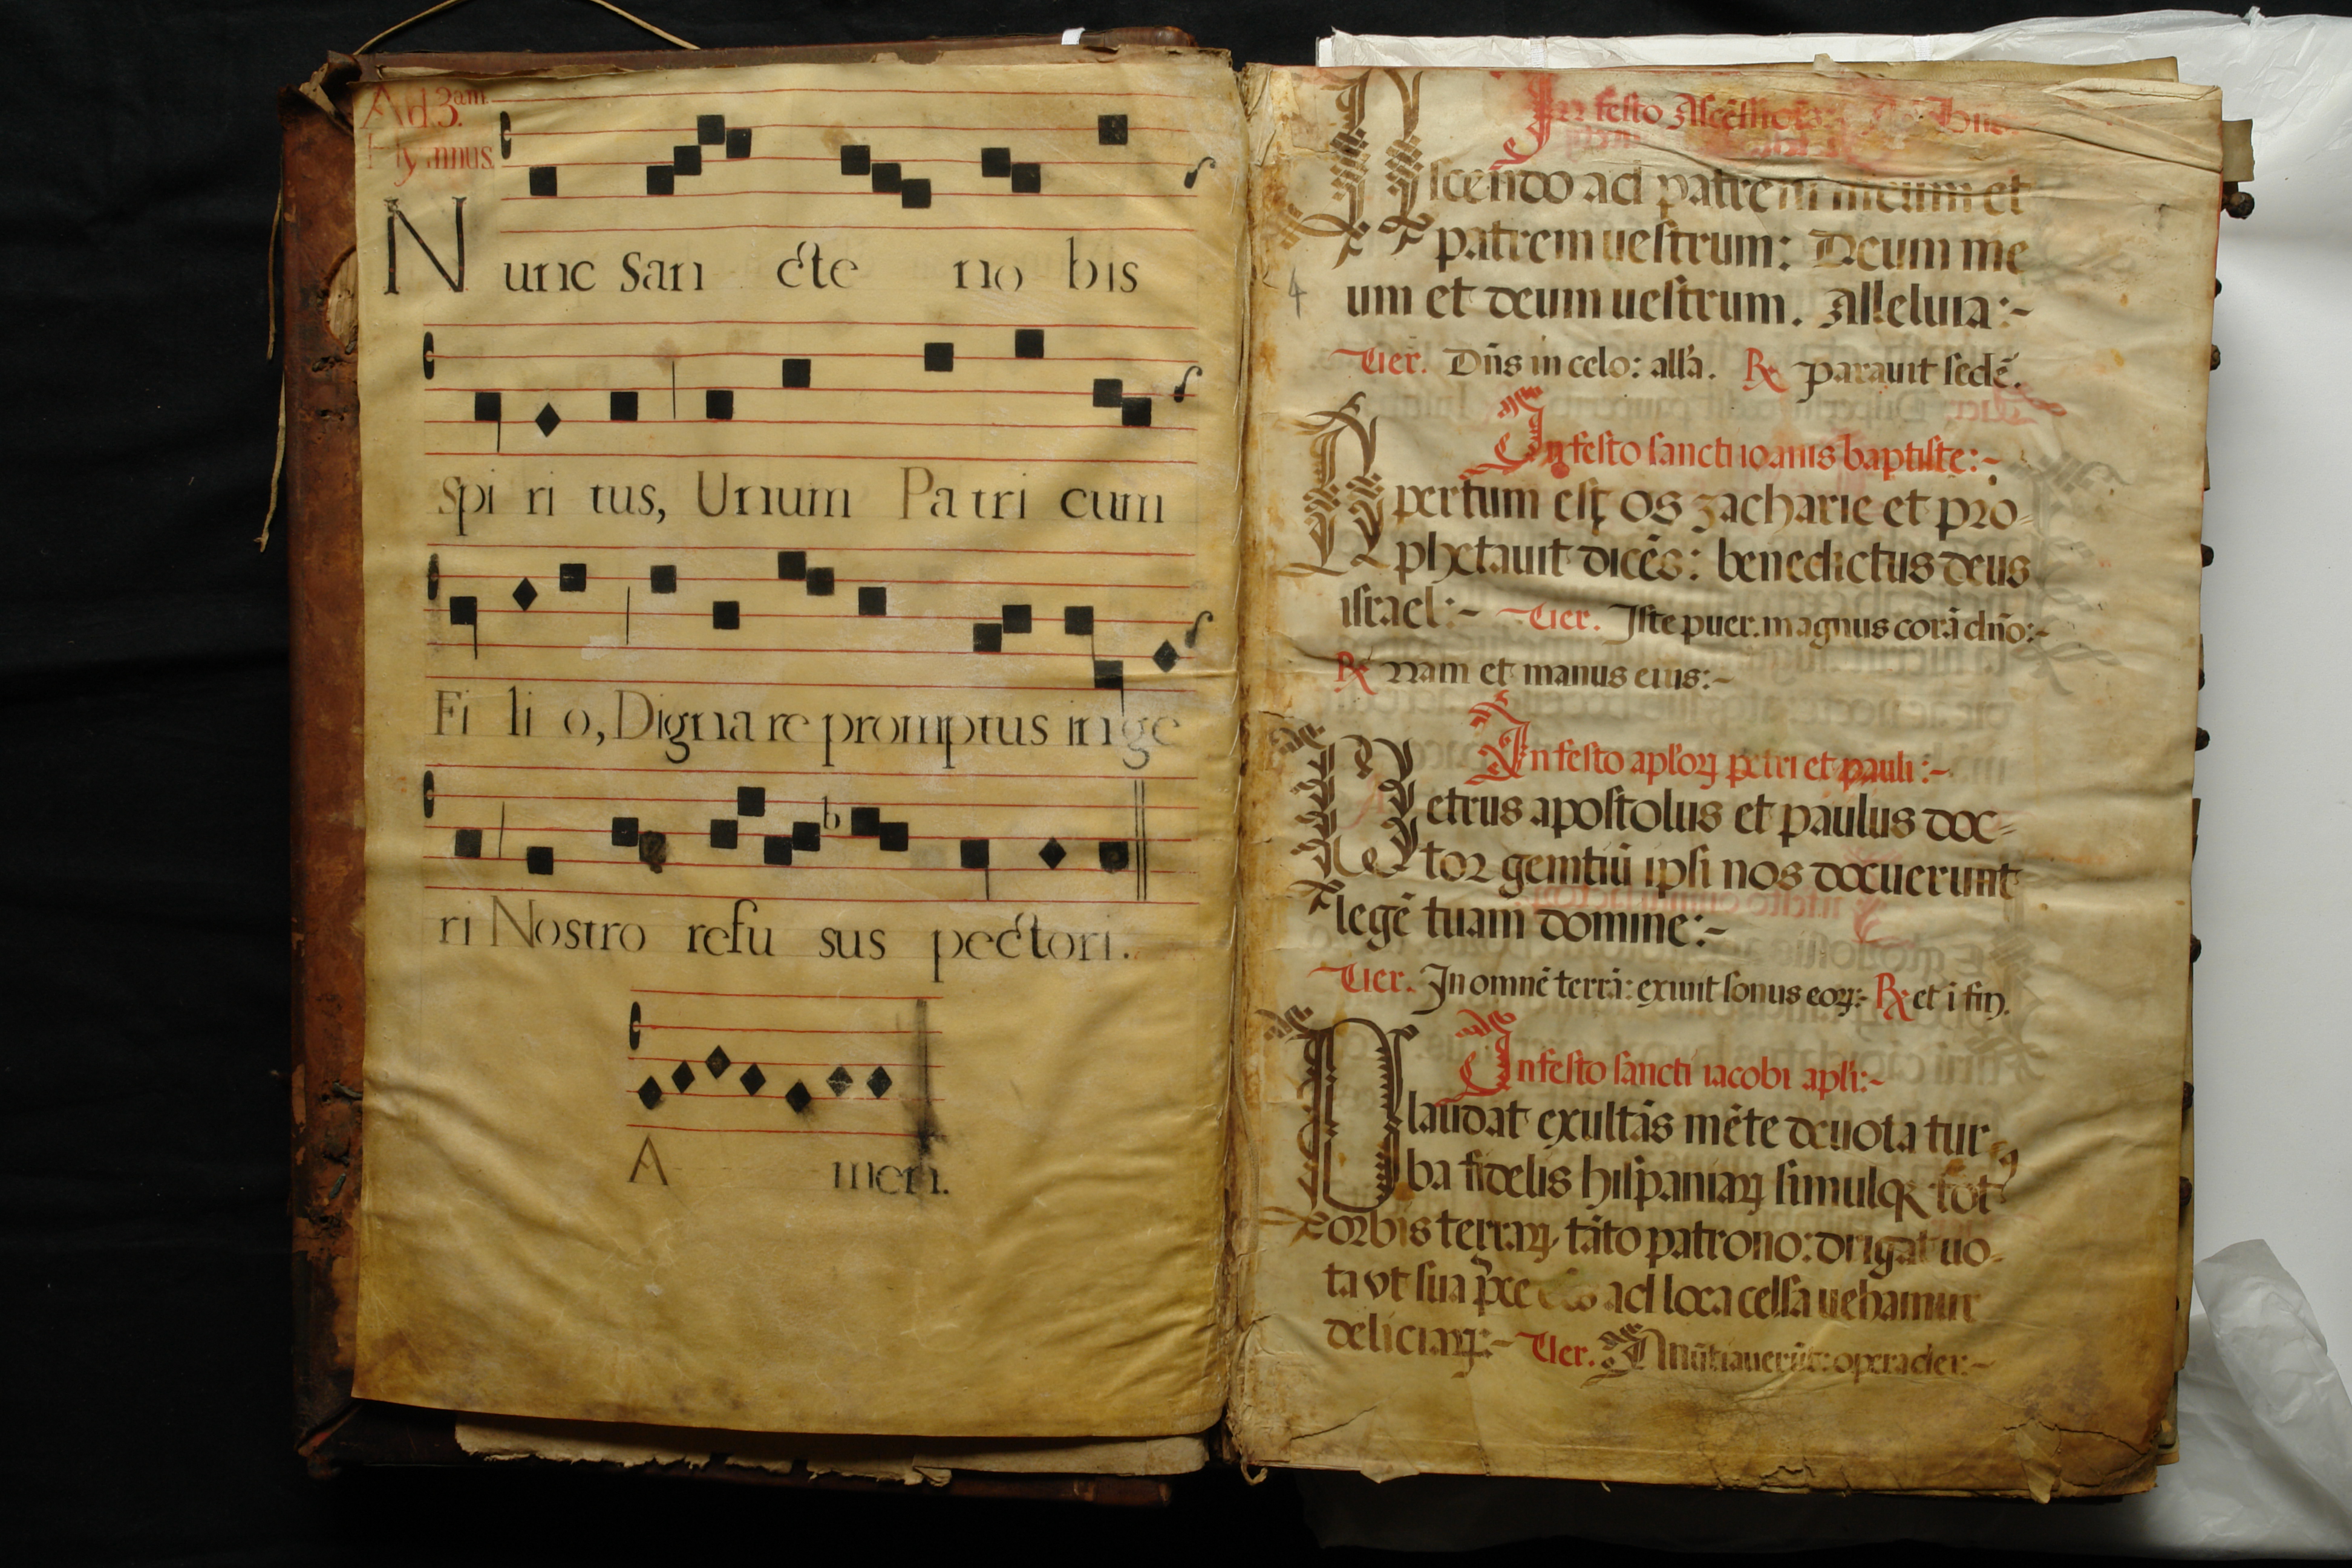 Ad. 3.am
Hymnus.
Nunc San cte no bis
Spi ri tus, Unum Pa tri cum
Fi li o, Digna re promptus in ge
ri Nostro refu sus pectori.
A men.
In festo Ascẽsiõis
Ascendo ad patrem meum et
patrem uestrum: Deum me
4
um et deum uestrum. Alleluia:~
Uer. Dñs in celo: all'a. ℟ parauit sedẽ.
In festo sancti ioanis baptiste:~
Apertum est os zacharie et pro=
phetauit dicẽs: benedictus deus
israel:~ Uer. Iste puer. magnus corã dño:~
℟ nam et manus eius:~
In festo apl'oꝝ petri et pauli:~
Petrus apostolus et paulus doc=
tor gentiũ ipsi nos docuerunt
legẽ tuam domine:~
Uer. In omnẽ terrã: exiuit sonus eoꝝ:~ ℟ et ĩ fin.
In festo sancti iacobi apl'i:~
Plaudat exultãs mẽte deuota tur=
ba fidelis hispaniaꝝ simulqꝫ tot'
orbis terraꝝ tãto patrono: dirigat uo
ta vt sua p̃ce ad loca celsa uehamur
deliciaꝝ:~ Uer. Anũtiauerũt: opera dei:~